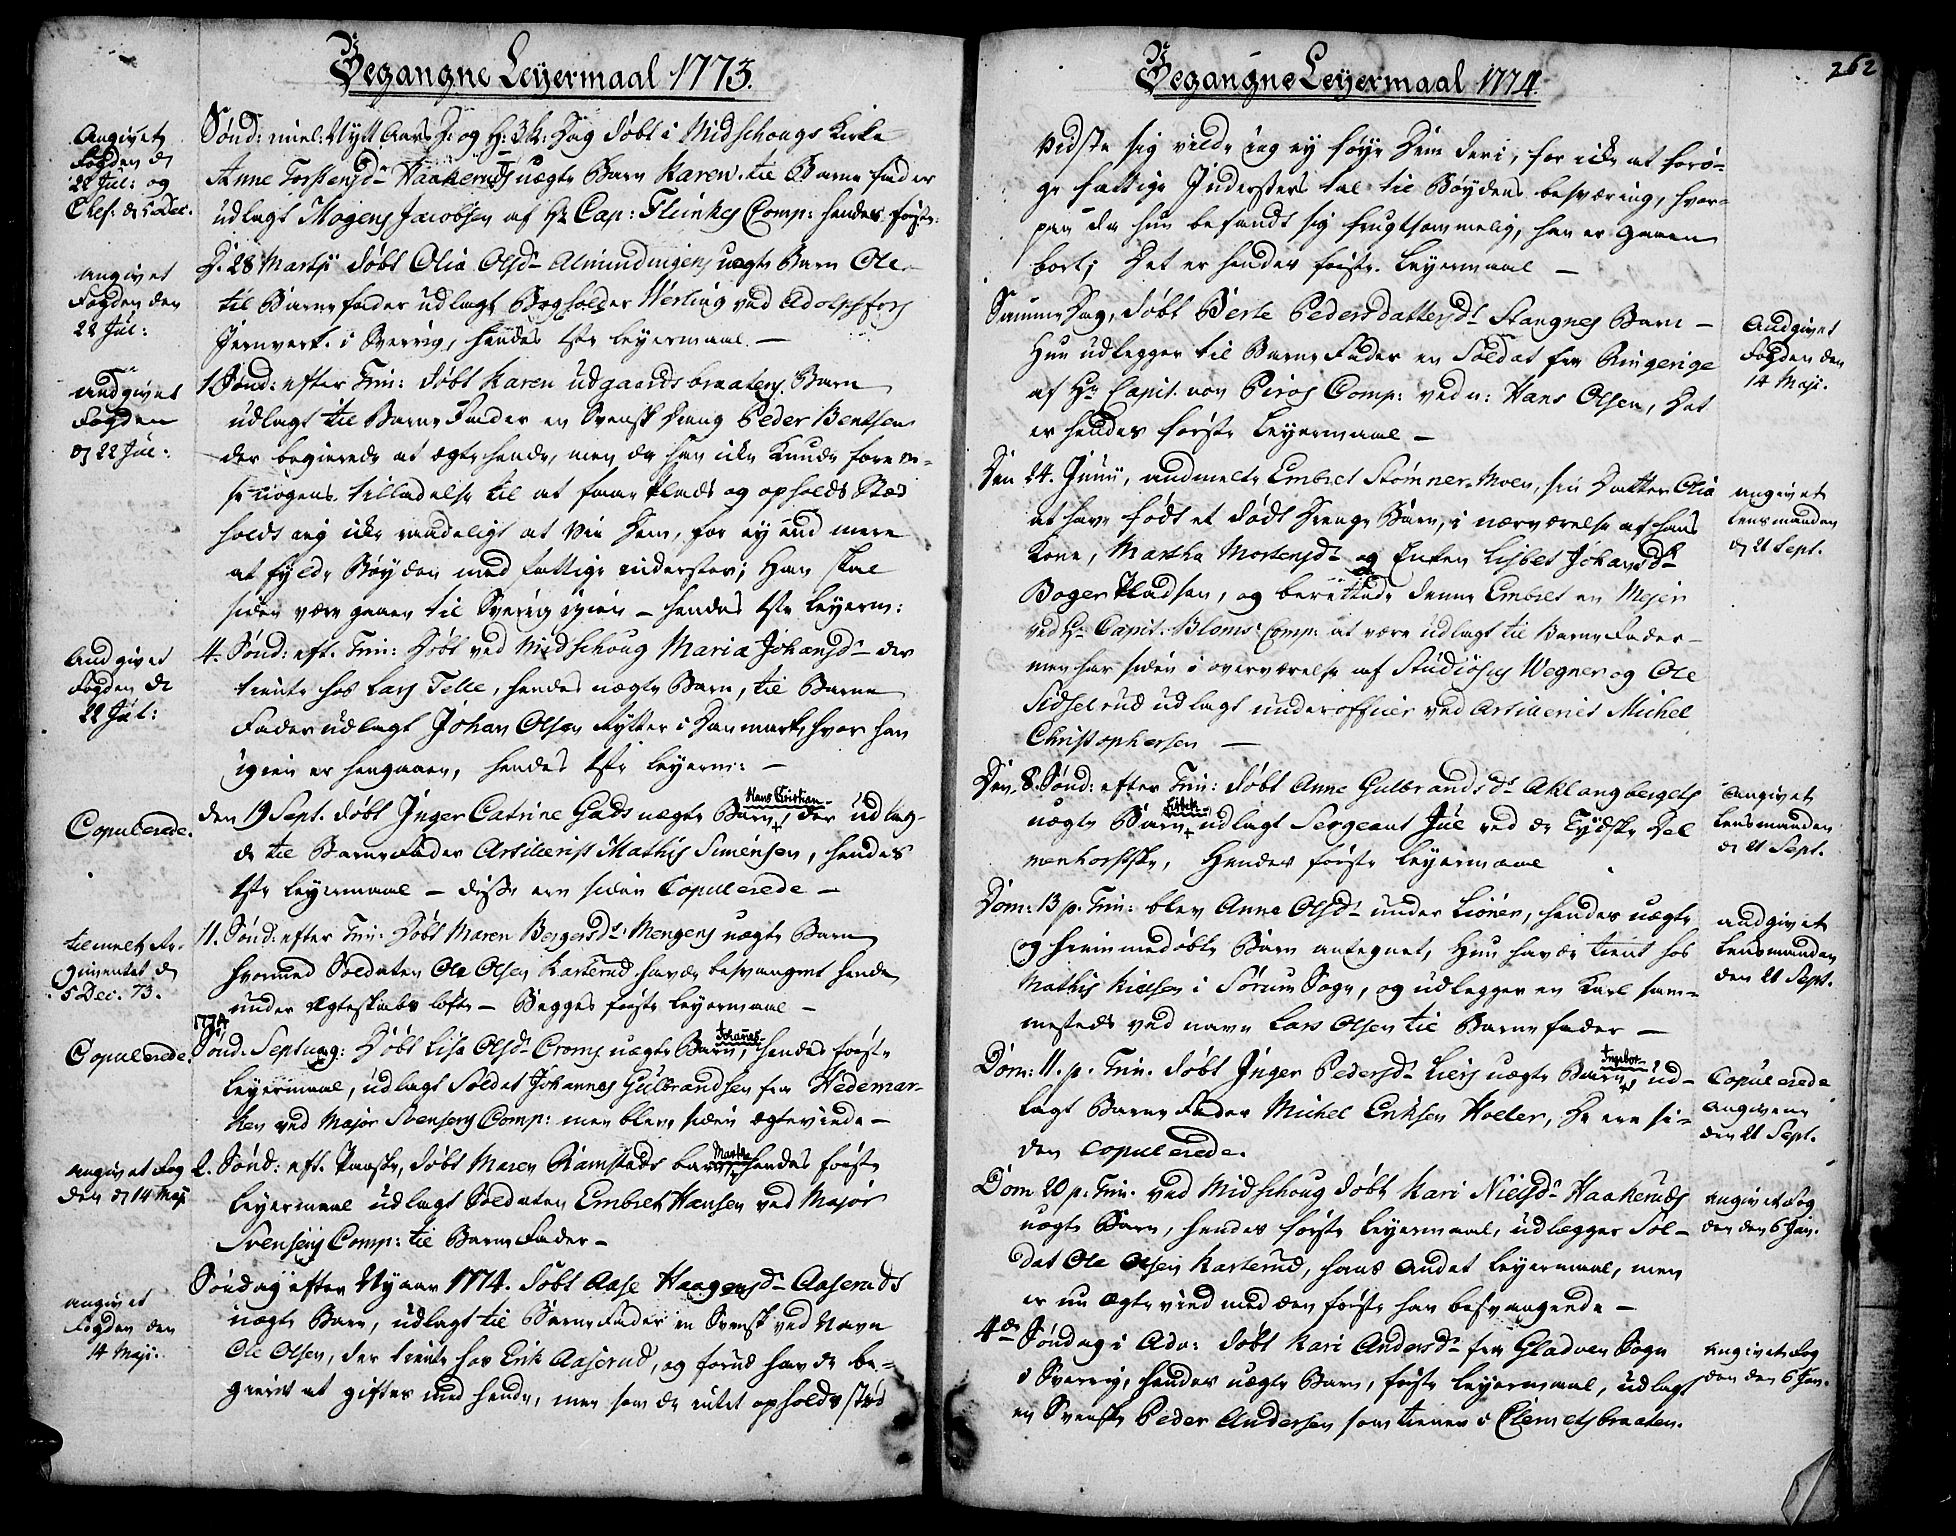 Begangne Leÿermaal 1773.
Angivet
Fogden d
22 Jul: og
Chef: d 5 Dec.
Sønd: mel: Nytt Aars D: og H: 3 K: Dag døbt i Midschougs Kirke
Anne Torstensd: Haakeruds uægte Barn Karen. til Barne fader
udlagt Mogens Jacobsen af Hr Cap: Fleinkes Comp: hendes første
angivet
Fogden den
22 Jul:
D. 28 Martji døbt Olia Olsd: Almindingens uægte Barn Ole
til Barnefader udlagt Bogholder Werling ved Adolphfors
Jernverk i Sverrig, hendes 1ste leyermaal. —
andgivet
Fogden
d 22 Jul:
1 Sønd: efter Trin: døbt Karen udgaardsbraatens Barn
udlagt til Barne Fader en Svensk Dreng Peder Bentsen
der begierede at ægte hende, men da han ikke kunde forevi-
se nogens tilladelse til at faae Plads og opholds Sted
holdt ieg ikke raadeligt at vie dem, for ey end mere
at fylde Bøyden med fattige inderster; Han skal
siden være gaaen til Sverig igien — hendes 1ste leyerm:
Andgivet
Fogden d
22 Jul:
4. Sønd: eft. Trin: døbt ved Midschoug Maria Johansd: der
tiente hos Lars Telle, hendes uægte Barn, til Barne
Fader udlagt Johan Olsen Rytter i Danmark, hvor han
igien er hengaaen, hendes 1ste leyerm: —
Copulerede.
den 19 Sept. døbt Inger Catrine Gads uægte Barn Hans Kristian, der udlag-
de til BarneFader Artillerist Mathis Simensen, hendes
1ste leyermaal — disse ere siden Copulerede —
tilmelt Re-
gimentet d
5 Dec. 73.
11. Sønd: efter Trin: døbt Maren Bergersd: Mengens uægte Barn
hvormed Soldaten Ole Olsen Karterud havde besvangret hende
under Ægteskabs løfte — Begges første leyermaal —
Copulerede.
1774
Sønd. Septuag: døbt Lisa Olsd: Croms uægte Barn Johannes, hendes første
leyermaal, udlagt Soldat Johannes Gulbrandsen fra Hedemar-
ken ved Major Svensens Comp: men bleve siden ægteviede —
angivet Fog
den d 14 Maji
2. Sønd: eft. Paaske, døbt Maren Ramstads barn Marthe hendes første
leyermaal udlagt Soldaten Embret Hansen ved Major
Svensens Comp: til BarneFader —
angivet
Fogden den
14 Maji.
Søndag efter Nyaar 1774. døbt Aase Haagensd: Aaseruds
uægte Barn, udlagt til BarneFader en Svensk ved Navn
Ole Olsen, der tiente hos Erik Aaserud, og forud havde be-
gieret at giftes med hende, men som de intet opholds sted
Begangne Leÿermaal 1774.
262
vidste sig vilde ieg ey føye dem deri, for ikke at forø-
ge fattige Indersters tal til Bøydens besværing, hvor-
paa da hun befandt sig frugtsommelig, han er gaaen
bort; Det er hendes første leyermaal —
Andgivet
Fogden den
14 Maji.
Samme Dag, døbt Berte Pedersdatters Stangnes Barn —
Hun udlegger til BarneFader en Soldat fra Ringerige
af Hr Capit. von Piros Comp: ved n: Hans Olsen, Det
er hendes første leyermaal —
angivet
lensmanden
d 21 Sept.
Den 24. Junii, anmelte Embret Stømner-Moen, sin Datter Olia
at have født et dødt Drenge Barn, i nærværelse af hans
Kone, Martha Mortensd: og Enken Lisbet Johansd:
Boger Pladsen, og berettede denne Embret en Mejer
ved Hr Capit. Bloms Comp: at være udlagt til BarneFader —
men har siden i overværelse af Studiosus Wegner og Ole
Sidselrud udlagt underofficier ved Artilleriet Michel
Christophersen —
angivet
lensmanden
d 21 Sept.
Den 8. Sønd: efter Trin: døbt Anne Gulbrandsd: Aklangbergets
uægte Barn Lisbet udlagt Sergeant Jul ved de Tydske Del
menhorstske, Hendes første leyermaal
andgivet
lensmanden
den 21 Sept.
Dom: 13 p. Trin: blev Anne Olsd: under Lioner, hendes uægte
og hiemmedøbte Barn antegnet, Hun havde tient hos
Mathis Nielsen i Sørum Sogn, og udlegger en Karl sam-
mesteds ved navn Lars Olsen til Barnefader —
Copulerede
angivne
den 21 Sept.
Dom: 11. p. Trin. døbt Inger Pedersd: Liers uægte Barn Ingebor ud-
lagt BarneFader Michel Eriksen Holter, De ere si-
den Copulerede.
angivet Fog
den den 6 Jan.
Dom 20 p. Trin. ved Midschoug døbt Kari Nielsd: Haakeruds
uægte Barn, hendes første leyermaal, udlegger Sol-
dat Ole Olsen Karterud, hans andet leyermaal, men
er nu ægteviet med den første han besvangrede —
angivet Fog
den den 6 Jan.
4de Søndag i Adv: døbt Kari Andersd: fra Gladven Sogn
i Sverrig, hendes uægte Barn, første leyermaal, udlagt
en Svensk Peder Andersen som tiener i Clemetsbraaten.